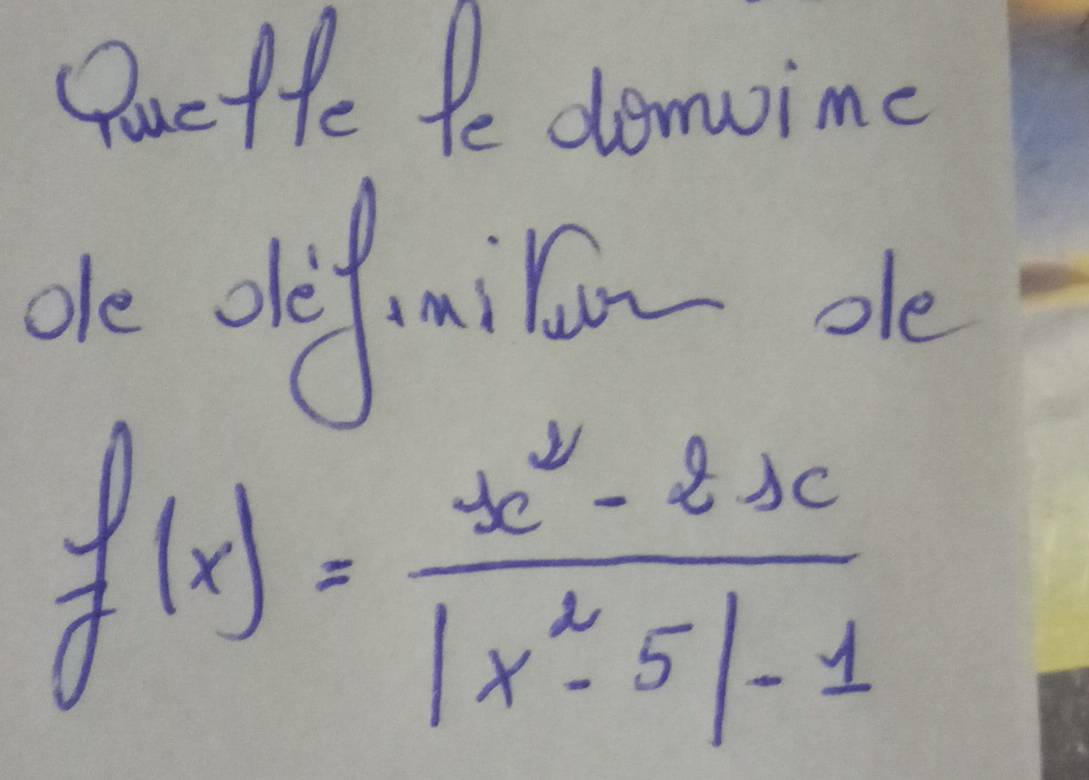 Quelle le domaine
de définition de
f(x) = \frac{x^2 - 2x}{|x^2 - 5| - 1}